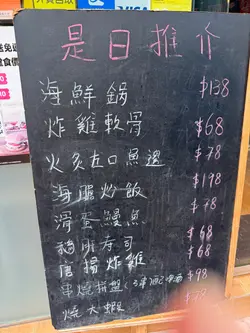 VISA
是日推介
海鮮鍋 $138
炸雞軟骨 $68
火炙左口魚邊 $78
海膽炒飯 $198
滑蛋鰻魚 $78
鵝肝寿司 $68
唐揚炸雞 $68
串燒拼盤 $98
燒大蝦